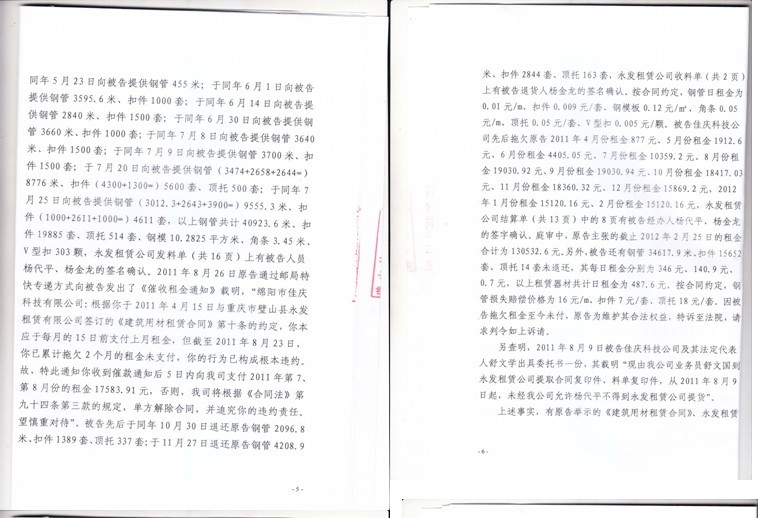 同年 5 月 23 日向被告提供钢管 455 米；于同年 6 月 1 日向被告
提供钢管 3595.6 米、扣件 1000 套；于同年 6 月 14 日向被告提
供钢管 2840 米、扣件 1500 套；于同年 6 月 30 日向被告提供钢
管 3660 米、扣件 1000 套；于同年 7 月 8 日向被告提供钢管 3640
米、扣件 1500 套；于同年 7 月 9 日向被告提供钢管 3700 米、扣
件 1500 套；于 7 月 20 日向被告提供钢管（3474+2658+2644=）
8776 米、扣件（4300+1300=）5600 套、顶托 500 套；于同年 7
月 25 日向被告提供钢管（3012.3+2643+3900=）9555.3 米、扣
件（1000+2611+1000=）4611 套，以上钢管共计 40923.6 米、扣
件 19885 套、顶托 514 套、钢模 10.2825 平方米、角条 3.45 米、
V 型扣 303 颗，永发租赁公司发料单（共 16 页）上有被告人员
杨代平、杨金龙的签名确认。2011 年 8 月 26 日原告通过邮局特
快专递方式向被告发出了《催收租金通知》载明，“绵阳市佳庆
科技有限公司：根据你于 2011 年 4 月 15 日与重庆市璧山县永发
租赁有限公司签订的《建筑用材租赁合同》第十条的约定，你本
应于每月的 15 日前支付上月租金，但截至 2011 年 8 月 23 日，
你已累计拖欠 2 个月的租金未支付，你的行为已构成根本违约。
故，特此通知你收到催款通知后 5 日内向我司支付 2011 年第 7、
第 8 月份的租金 17583.91 元，否则，我司将根据《合同法》第
九十四条第三款的规定，单方解除合同，并追究你的违约责任。
望慎重对待”。被告先后于同年 10 月 30 日退还原告钢管 2096.8
米、扣件 1389 套、顶托 337 套；于 11 月 27 日退还原告钢管 4208.9
- 5 -
米、扣件 2844 套、顶托 163 套，永发租赁公司收料单（共 2 页）
上有被告退货人杨金龙的签名确认。按合同约定，钢管日租金为
0.01 元/m、扣件 0.009 元/套、钢模板 0.12 元/㎡、角条 0.05
元/m、顶托 0.05 元/套、V 型扣 0.005 元/颗。被告佳庆科技公
司先后拖欠原告 2011 年 4 月份租金 877 元、5 月份租金 1912.6
元、6 月份租金 4405.05 元、7 月份租金 10359.2 元、8 月份租
金 19030.92 元、9 月份租金 19030.94 元、10 月份租金 18417.03
元、11 月份租金 18360.32 元、12 月份租金 15869.2 元，2012
年 1 月份租金 15120.16 元、2 月份租金 15120.16 元，永发租赁
公司结算单（共 13 页）中的 8 页有被告经办人杨代平、杨金龙
的签字确认。庭审中，原告主张的截止 2012 年 2 月 25 日的租金
合计为 130532.6 元。另外，被告还有钢管 34617.9 米、扣件 15652
套、顶托 14 套未退还，其每日租金分别为 346 元、140.9 元、
0.7 元，以上租赁器材共计日租金为 487.6 元。按合同约定，钢
管损失赔偿价格为 16 元/m、扣件 7 元/套、顶托 18 元/套。因被
告拖欠租金至今未付，原告为维护其合法权益，特诉至法院，请
求判令如上诉请。
另查明，2011 年 8 月 9 日被告佳庆科技公司及其法定代表
人舒文学出具委托书一份，其载明“现由我公司业务员舒文国到
永发租赁公司提取合同复印件、料单复印件，从 2011 年 8 月 9
日起，未经我公司允许杨代平不得到永发租赁公司提货”。
上述事实，有原告举示的《建筑用材租赁合同》、永发租赁
- 6 -